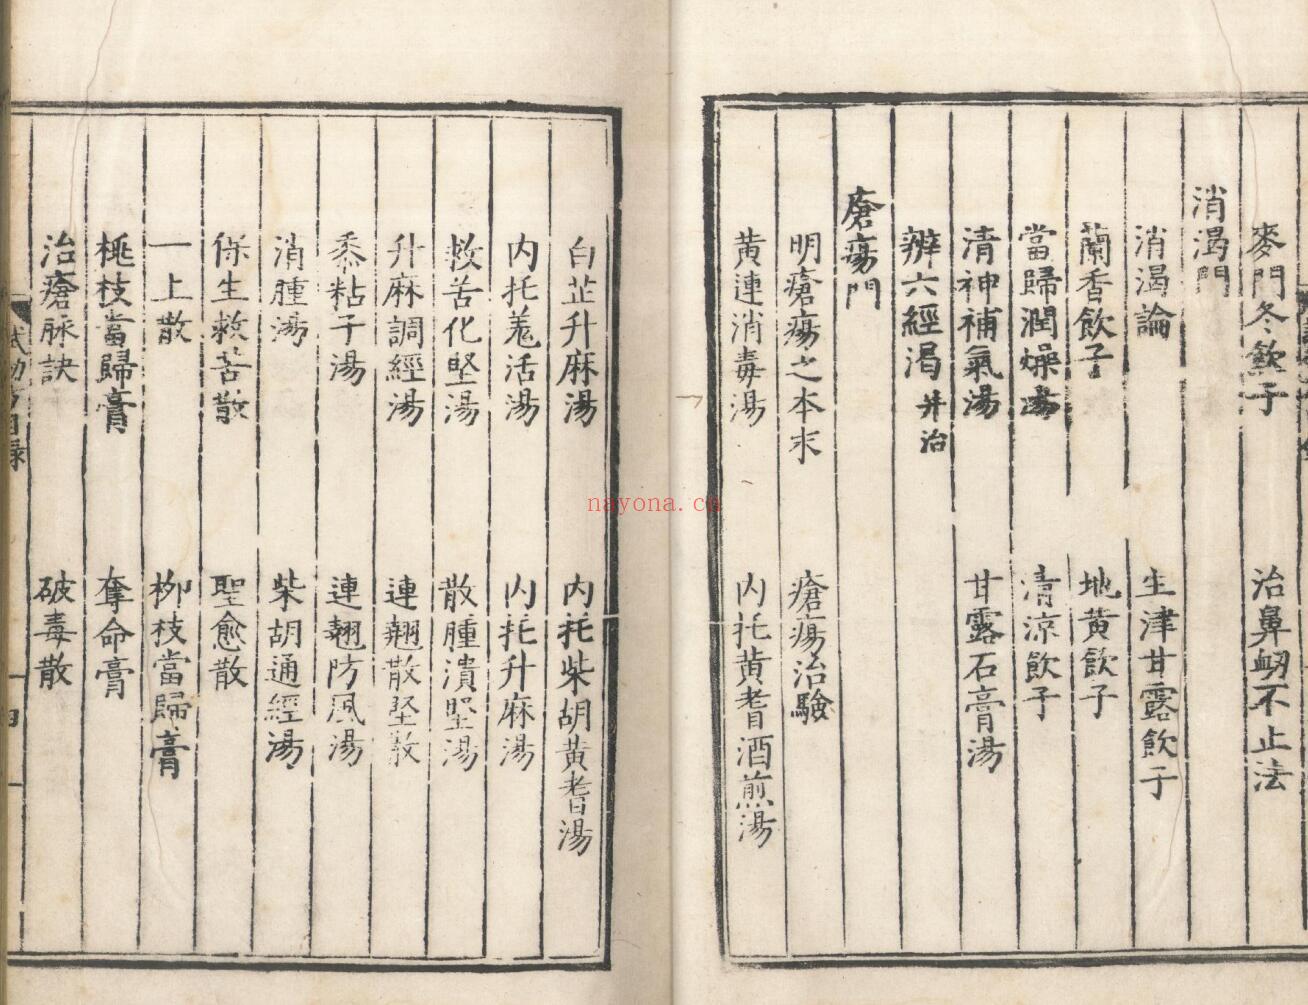 麥門冬飲子　治鼻衂不止法
消渴門
消渴論　生津甘露飲子
蘭香飲子　地黃飲子
當歸潤燥湯　清涼飲子
清神補氣湯　甘露石膏湯
辨六經渴并治
瘡瘍門
明瘡瘍之本末　瘡瘍治驗
黃連消毒湯　內托黃耆酒煎湯
白芷升麻湯　內托柴胡黃耆湯
內托羗活湯　內托升麻湯
救苦化堅湯　散腫潰堅湯
升麻調經湯　連翹散堅散
黍粘子湯　連翹防風湯
消腫湯　柴胡通經湯
保生救苦散　聖愈散
一上散　柳枝當歸膏
桃枝當歸膏　奪命膏
治瘡脉訣　破毒散
試効方目録
四
nayona.cn